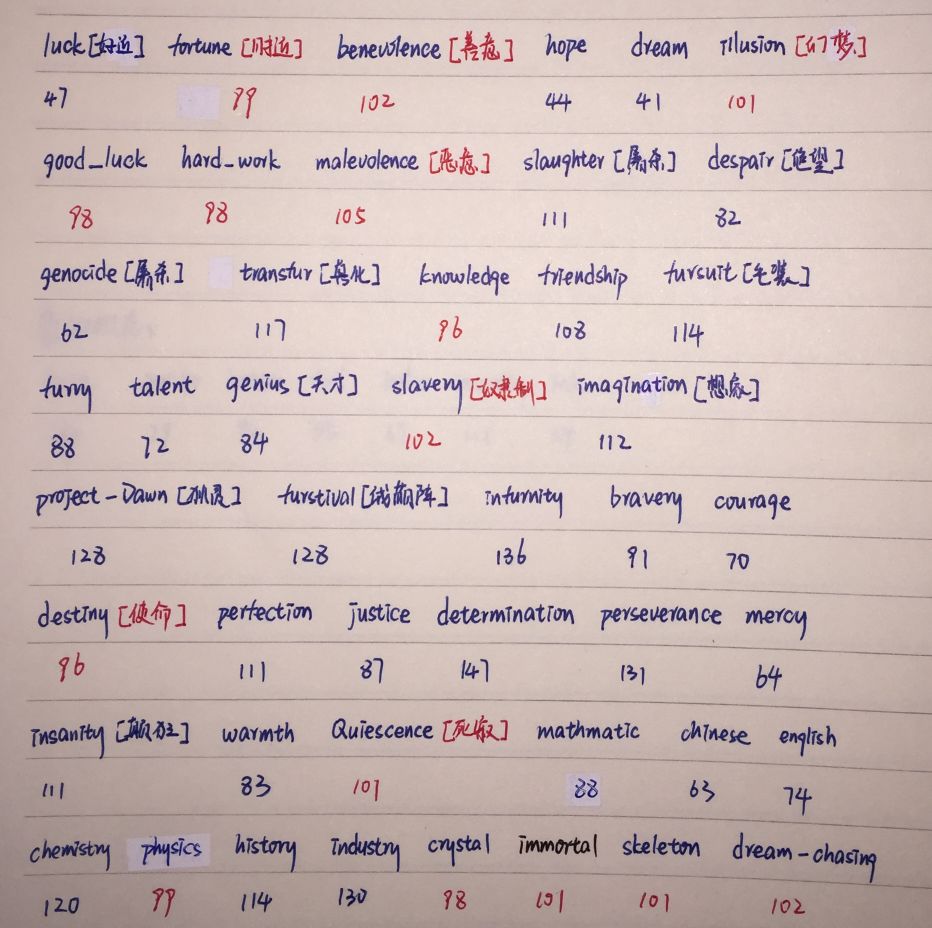 luck [好运] fortune [时运] benevolence [善意] hope dream illusion [幻梦]
47 99 102 44 41 101
good_luck hard_work malevolence [恶意] slaughter [屠杀] despair [绝望]
98 98 105 111 82
genocide [屠杀] transfur [兽化] knowledge friendship fursuit [毛装]
62 117 96 108 114
furry talent genius [天才] slavery [奴隶制] imagination [想象]
88 72 84 102 112
project-Dawn furstival [兽颠阵] infurnity bravery courage
128 128 136 91 70
destiny [使命] perfection justice determination perseverance mercy
96 111 87 147 131 64
insanity [癫狂] warmth Quiescence [死寂] mathmatic chinese english
111 83 101 88 63 74
chemistry physics history industry crystal immortal skeleton dream-chasing
120 99 114 130 98 101 101 102